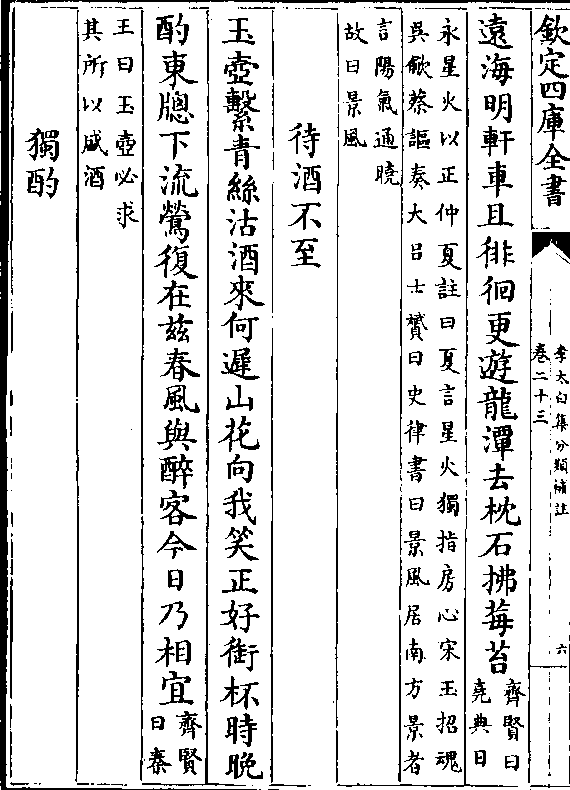 欽定四庫全書
李太白集分類補註
卷二十三
六
遠海明軒車且徘徊更遊龍潭去枕石拂莓苔
齊賢曰
堯典日
永星火以正仲夏註曰夏言星火獨指房心宋玉招魂
吳歈蔡謳奏大呂士贇曰史律書曰景風居南方景者
言陽氣通曉
故曰景風
待酒不至
玉壺繫青絲沽酒來何遲山花向我笑正好銜杯時晚
酌東牕下流鶯復在兹春風與醉客今日乃相宜
齊賢
曰秦
王曰玉壺必求
其所以盛酒
獨酌